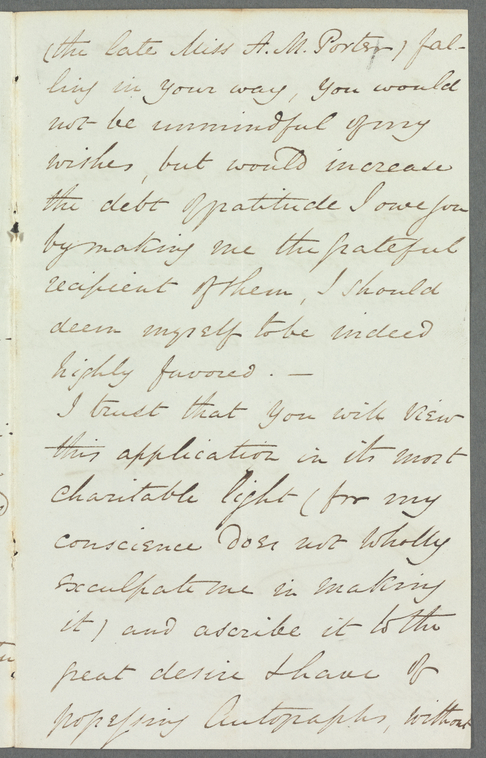 (the late Miss A. M. Porter) fal-
ling in your way, you would
not be unmindful of my
wishes, but would increase
the debt of gratitude I owe you
by making me the grateful
recipient of them, I should
deem myself to be indeed
highly favored. —
I trust that you will view
this application in its most
charitable light (for my
conscience does not wholly
exculpate me in making
it) and ascribe it to the
great desire I have of
possessing Autographs, without